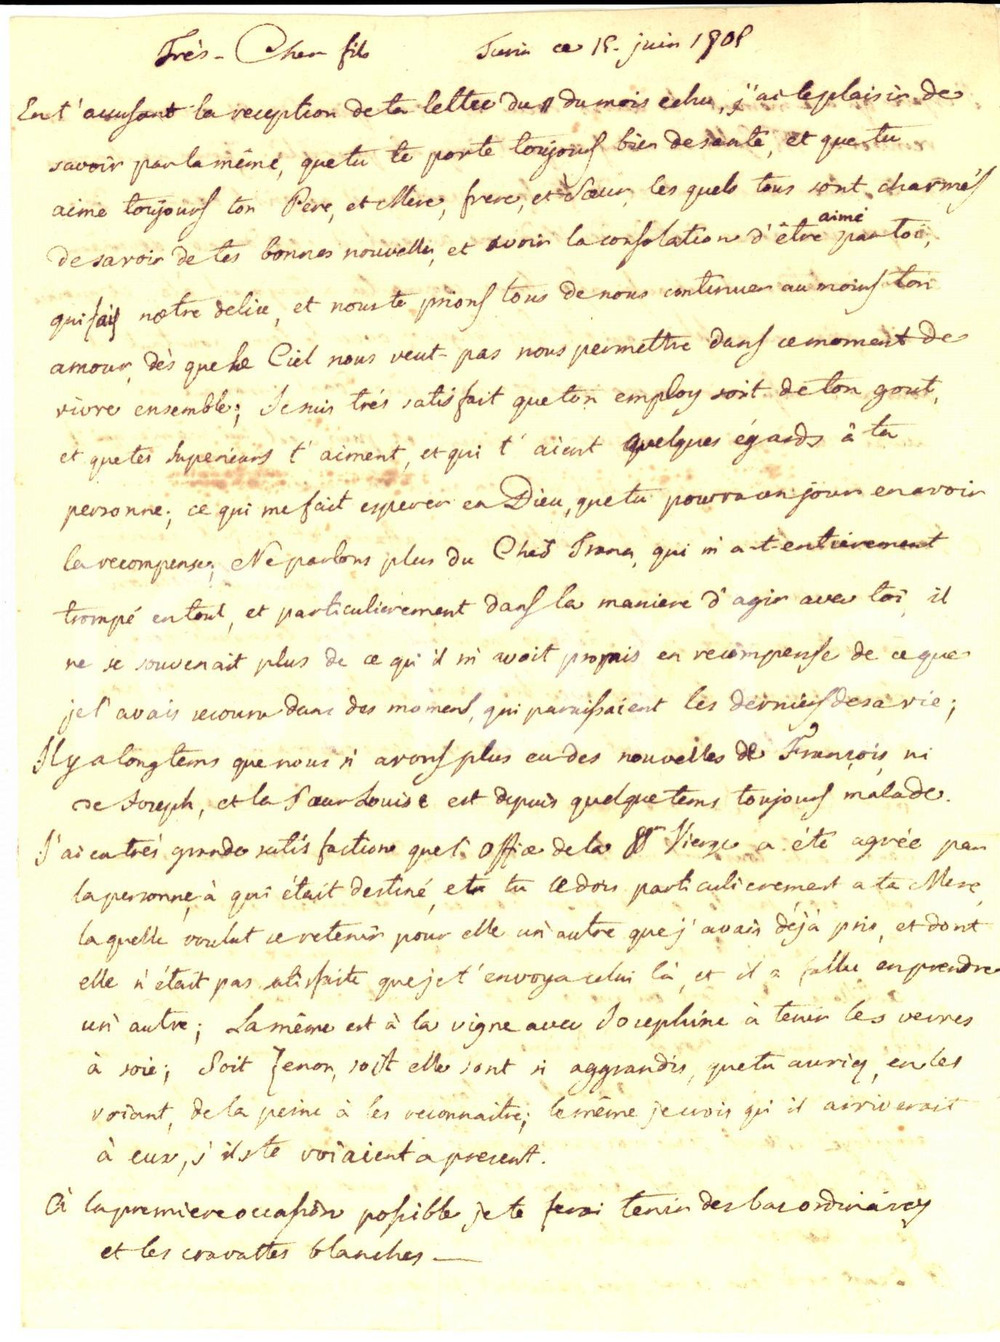 Très-Cher fils Turin ce 15. juin 1805
En t'accusant la reception de ta lettre du 11 du mois echu, j'ai le plaisir de
savoir par la même, que tu te porte toujours bien de santé, et que tu
aime toujours ton Pere, et Mere, frere, et Sœur, les quels tous sont charmés
de savoir de tes bonnes nouvelles, et avoir la consolation d'être aimé par toi,
qui fais nôtre delice, et nous te prions tous de nous continuer au moins ton
amour, dès que le Ciel nous veut pas nous permettre dans ce moment de
vivre ensemble; Je suis très satisfait que ton employ soit de ton gout,
et que tes Superieurs t'aiment, et qui t'aient quelques égards à ta
personne; ce qui me fait esperer en Dieu, que tu pourra un jour en avoir
la recompense; Ne parlons plus du Cher Trana, qui m'a entierement
trompé en tout, et particulierement dans la maniere d'agir avec toi, il
ne se souvenait plus de ce qu'il m'avoit promis en recompense de ce que
je l'avais secouru dans des momens, qui paraissaient les derniers de sa vie;
Il y a longtems que nous n'avons plus eu des nouvelles de François, ni
de Joseph, et la Sœur Louise est depuis quelque tems toujours malade.
J'ai eu très grande satisfaction que l'Office de la SS. Vierge a été agrée par
la personne, à qui était destiné, et tu le dois particulierement a ta Mere,
laquelle voulut se retenir pour elle un'autre que j'avais déjà pris, et dont
elle n'était pas satisfaite que je t'envoya celui là, et il a fallu en prendre
un'autre; La même est à la vigne avec Josephine à tenir les verres
à soie; Soit Zenon, soit elle sont si aggrandis, que tu auriez, en les
voiant, de la peine à les reconnaitre; le même je crois qu'il arriverait
à eux, s'ils te voiaient a present.
A la premiere occasion possible je te ferai tenir des bas ordinaires
et les cravattes blanches —